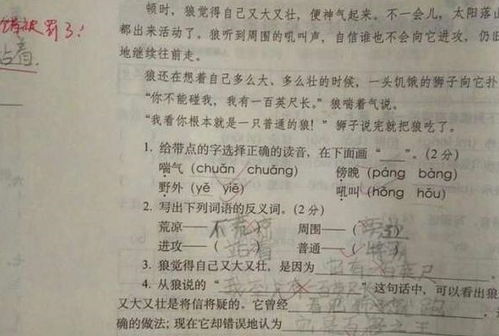 顿时，狼觉得自己又大又壮，便神气起来。不一会儿，太阳落山
都出来活动了。狼听到周围的吼叫声，自信谁也不会向它进攻，仍旧
地继续往前走。
狼还在想着自己多么大、多么壮的时候，一头饥饿的狮子向它扑
“你不能碰我，我有一百英尺长。”狼喘着气说。
“我看你根本就是一只普通的狼！”狮子说完就把狼吃了。
被罚了！
站着
1. 给带点的字选择正确的读音，在下面画“___”。(2分)
喘气（chuǎn chuǎng） 傍晚（páng bàng）
野外（yě yiě） 吼叫（hǒng hǒu）
2. 写出下列词语的反义词。(2分)
荒凉——（不荒凉） 周围——（）
进攻——（站着） 普通——（）
3. 狼觉得自己又大又壮，是因为
4. 从狼说的“”这句话中，可以看出狼
又大又壮是将信将疑的。它曾经
确的做法；现在它却错误地认为